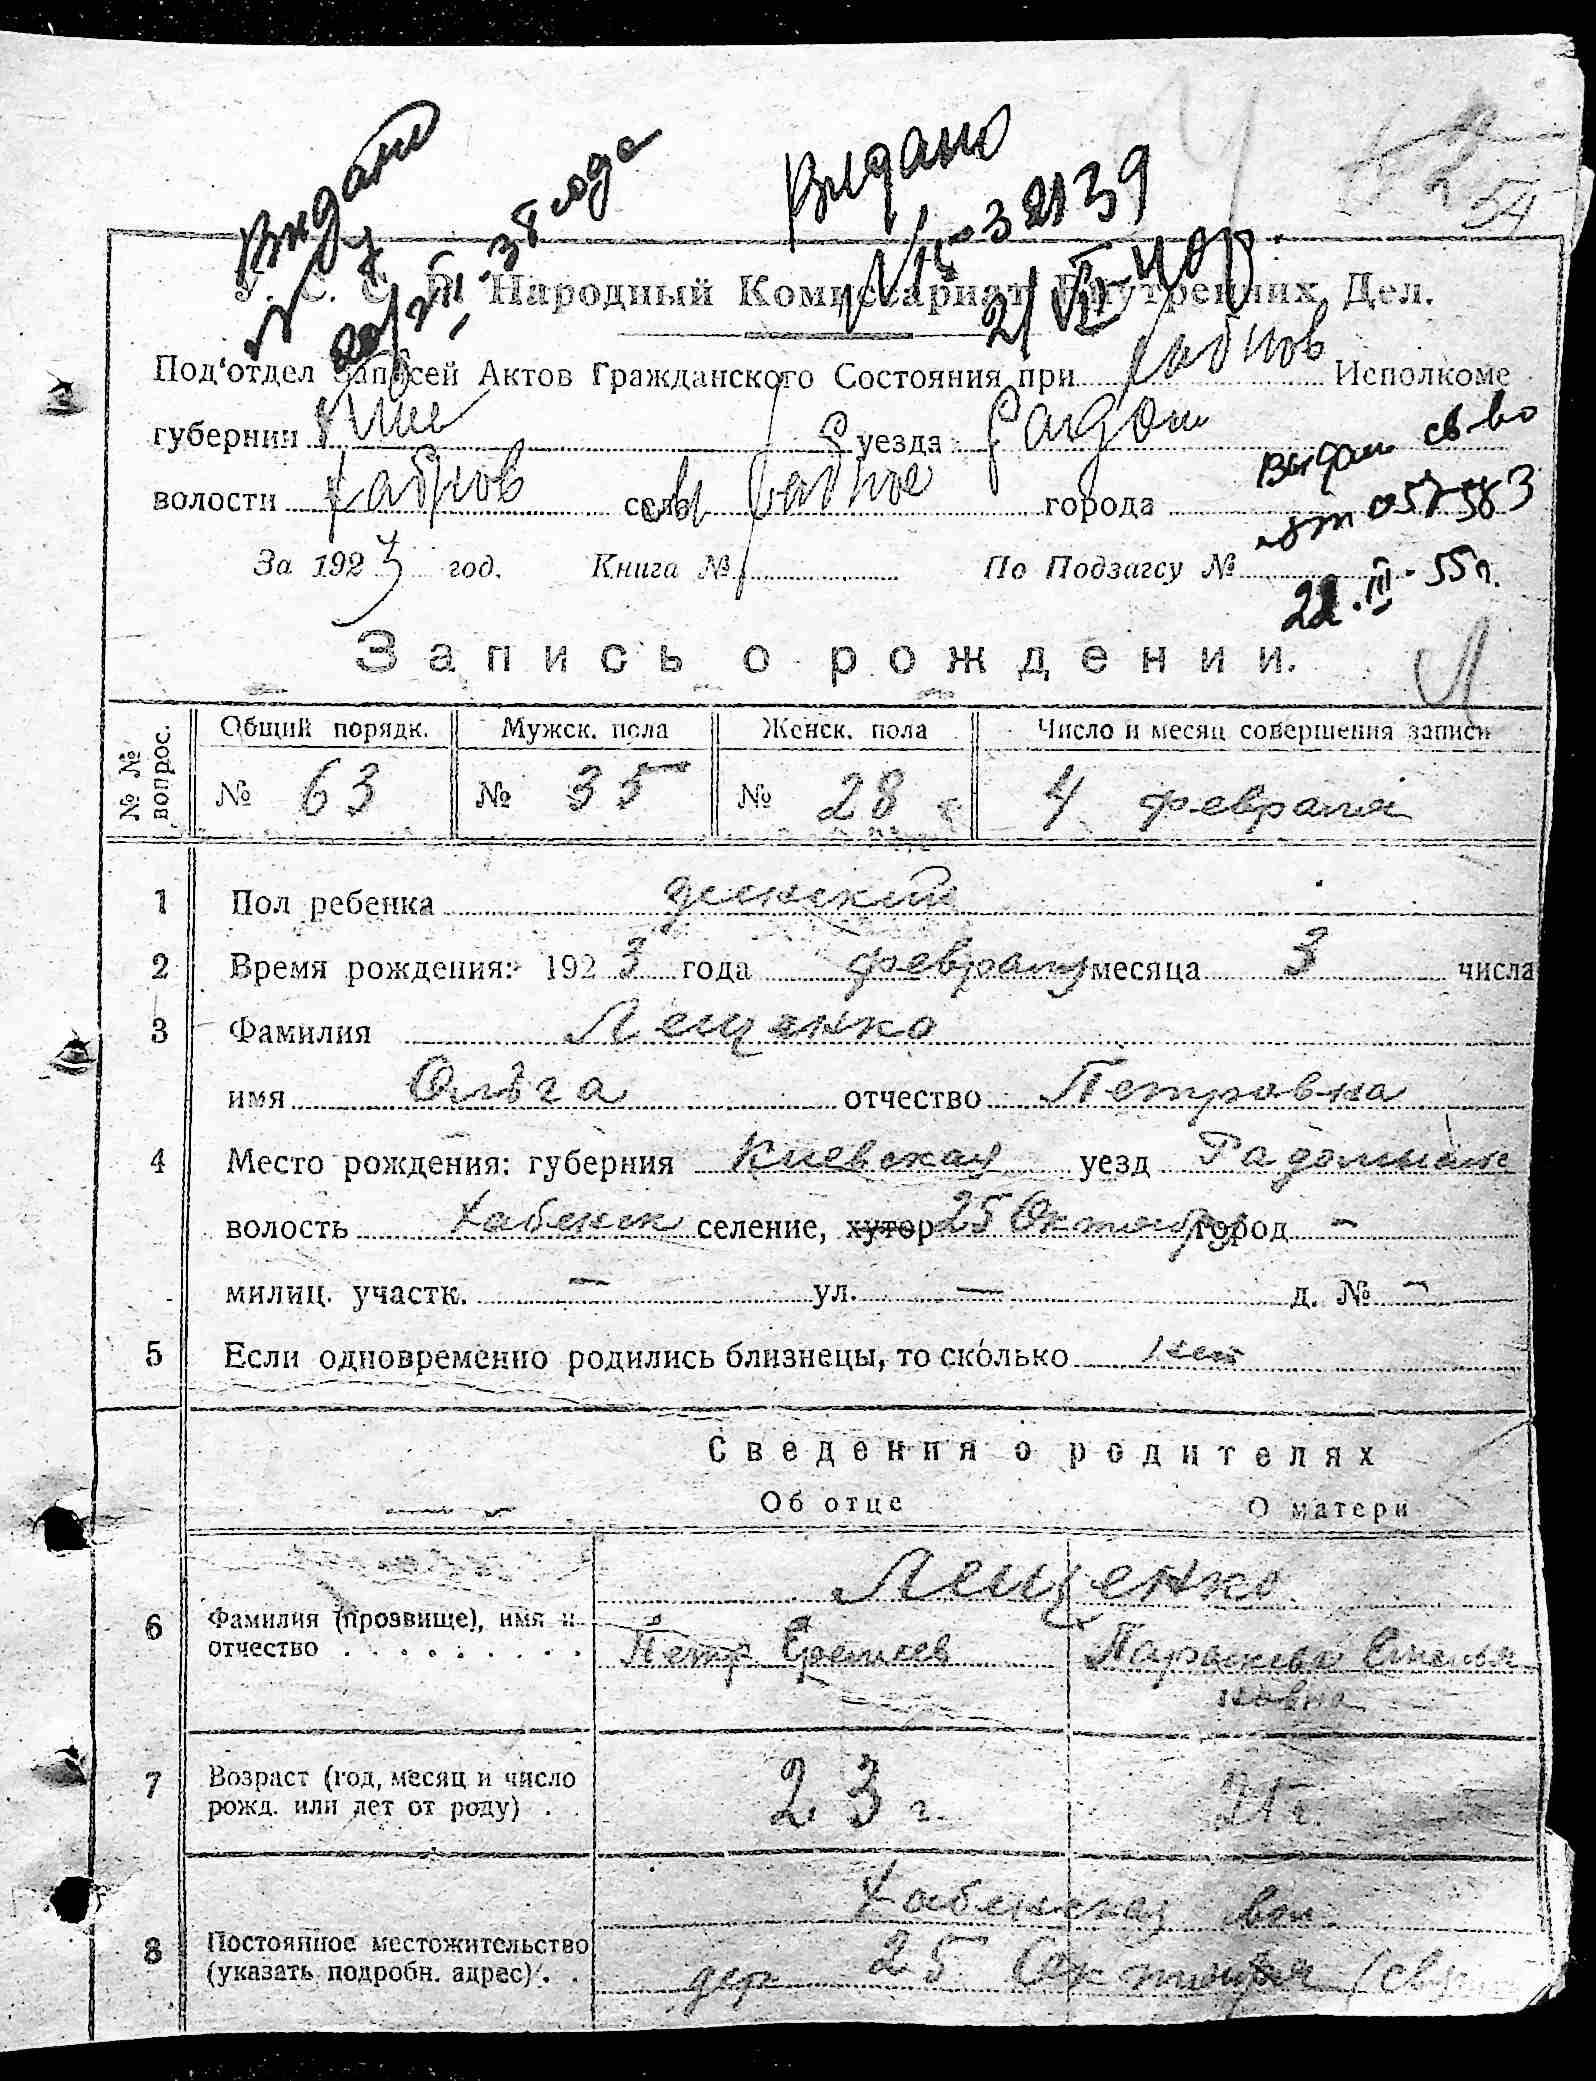 Выдано
20/VII-38 года
Выдано
№ 532139
2/VI-40р.
54
У. С. С. Р. Народный Комиссариат Внутренних Дел.
Под'отдел Записей Актов Гражданского Состояния при Хабнов Исполкоме
губернии Киев уезда Радом
волости Хабнов села Хабное города
Выдан св-во
057583
22.III-55г.
За 1923 год. Книга № По Подзагсу №
Запись о рождении.
№ № вопрос.
Общий порядк. Мужск. пола Женск. пола Число и месяц совершения записи
№ 63 № 35 № 28 4 февраля
1 Пол ребенка женский
2 Время рождения: 1923 года февраля месяца 3 числа
3 Фамилия Лещенко
имя Ольга отчество Петровна
4 Место рождения: губерния Киевская уезд Радомысл
волость Хабенск селение, хутор 25 Октября город –
милиц. участк. – ул. – д. № –
5 Если одновременно родились близнецы, то сколько нет
Сведения о родителях
Об отце О матери
Лещенко
6 Фамилия (прозвище), имя и отчество Петр Еремеев Параскева Емелья
новна
7 Возраст (год, месяц и число рожд. или лет от роду) 23 г. 21 г.
Хабенская вол.
8 Постоянное местожительство (указать подробн. адрес) дер 25 Октября